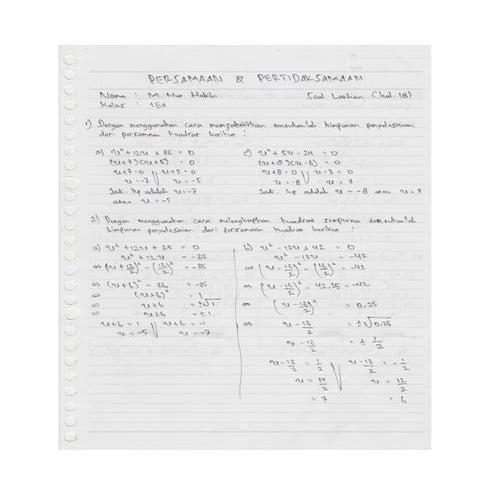 PERSAMAAN & PERTIDAKSAMAAN
Nama : M. Nur Hakiki
Soal Latihan (hal. 18)
Kelas : 1EA
1) Dengan menggunakan cara memfaktorkan tentukanlah himpunan penyelesaian
dari persamaan kuadrat berikut :
a) x² + 12x + 35 = 0
(x+7)(x+5) = 0
x+7=0 x+5=0
x=-7 x=-5
Jadi hp adalah x=-7
atau x=-5
c) x² + 5x - 24 = 0
(x+8)(x-3) = 0
x+8=0 x-3=0
x=-8 x=3
Jadi hp adalah x=-8 atau x=3
2) Dengan menggunakan cara melengkapkan kuadrat sempurna tentukanlah
himpunan penyelesaian dari persamaan kuadrat berikut :
a) x² + 12x + 35 = 0
x² + 12x = -35
⇔ (x+12/2)² - (12/2)² = -35
⇔ (x+6)² - 36 = -35
⇔ (x+6)² = 1
⇔ x+6 = ±√1
⇔ x+6 = ±1
x+6=1 x+6=-1
x=-5 x=-7
b) x² - 13x + 42 = 0
x² - 13x = -42
⇔ (x-13/2)² - (13/2)² = -42
⇔ (x-13/2)² - 42,25 = -42
⇔ (x-13/2)² = 0,25
⇔ x-13/2 = ±√0,25
x-13/2 = ±1/2
x-13/2 = 1/2 x-13/2 = -1/2
x = 14/2 x = 12/2
= 7 = 6